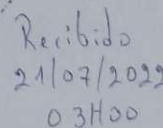 Recibido
21/07/2022
03H00